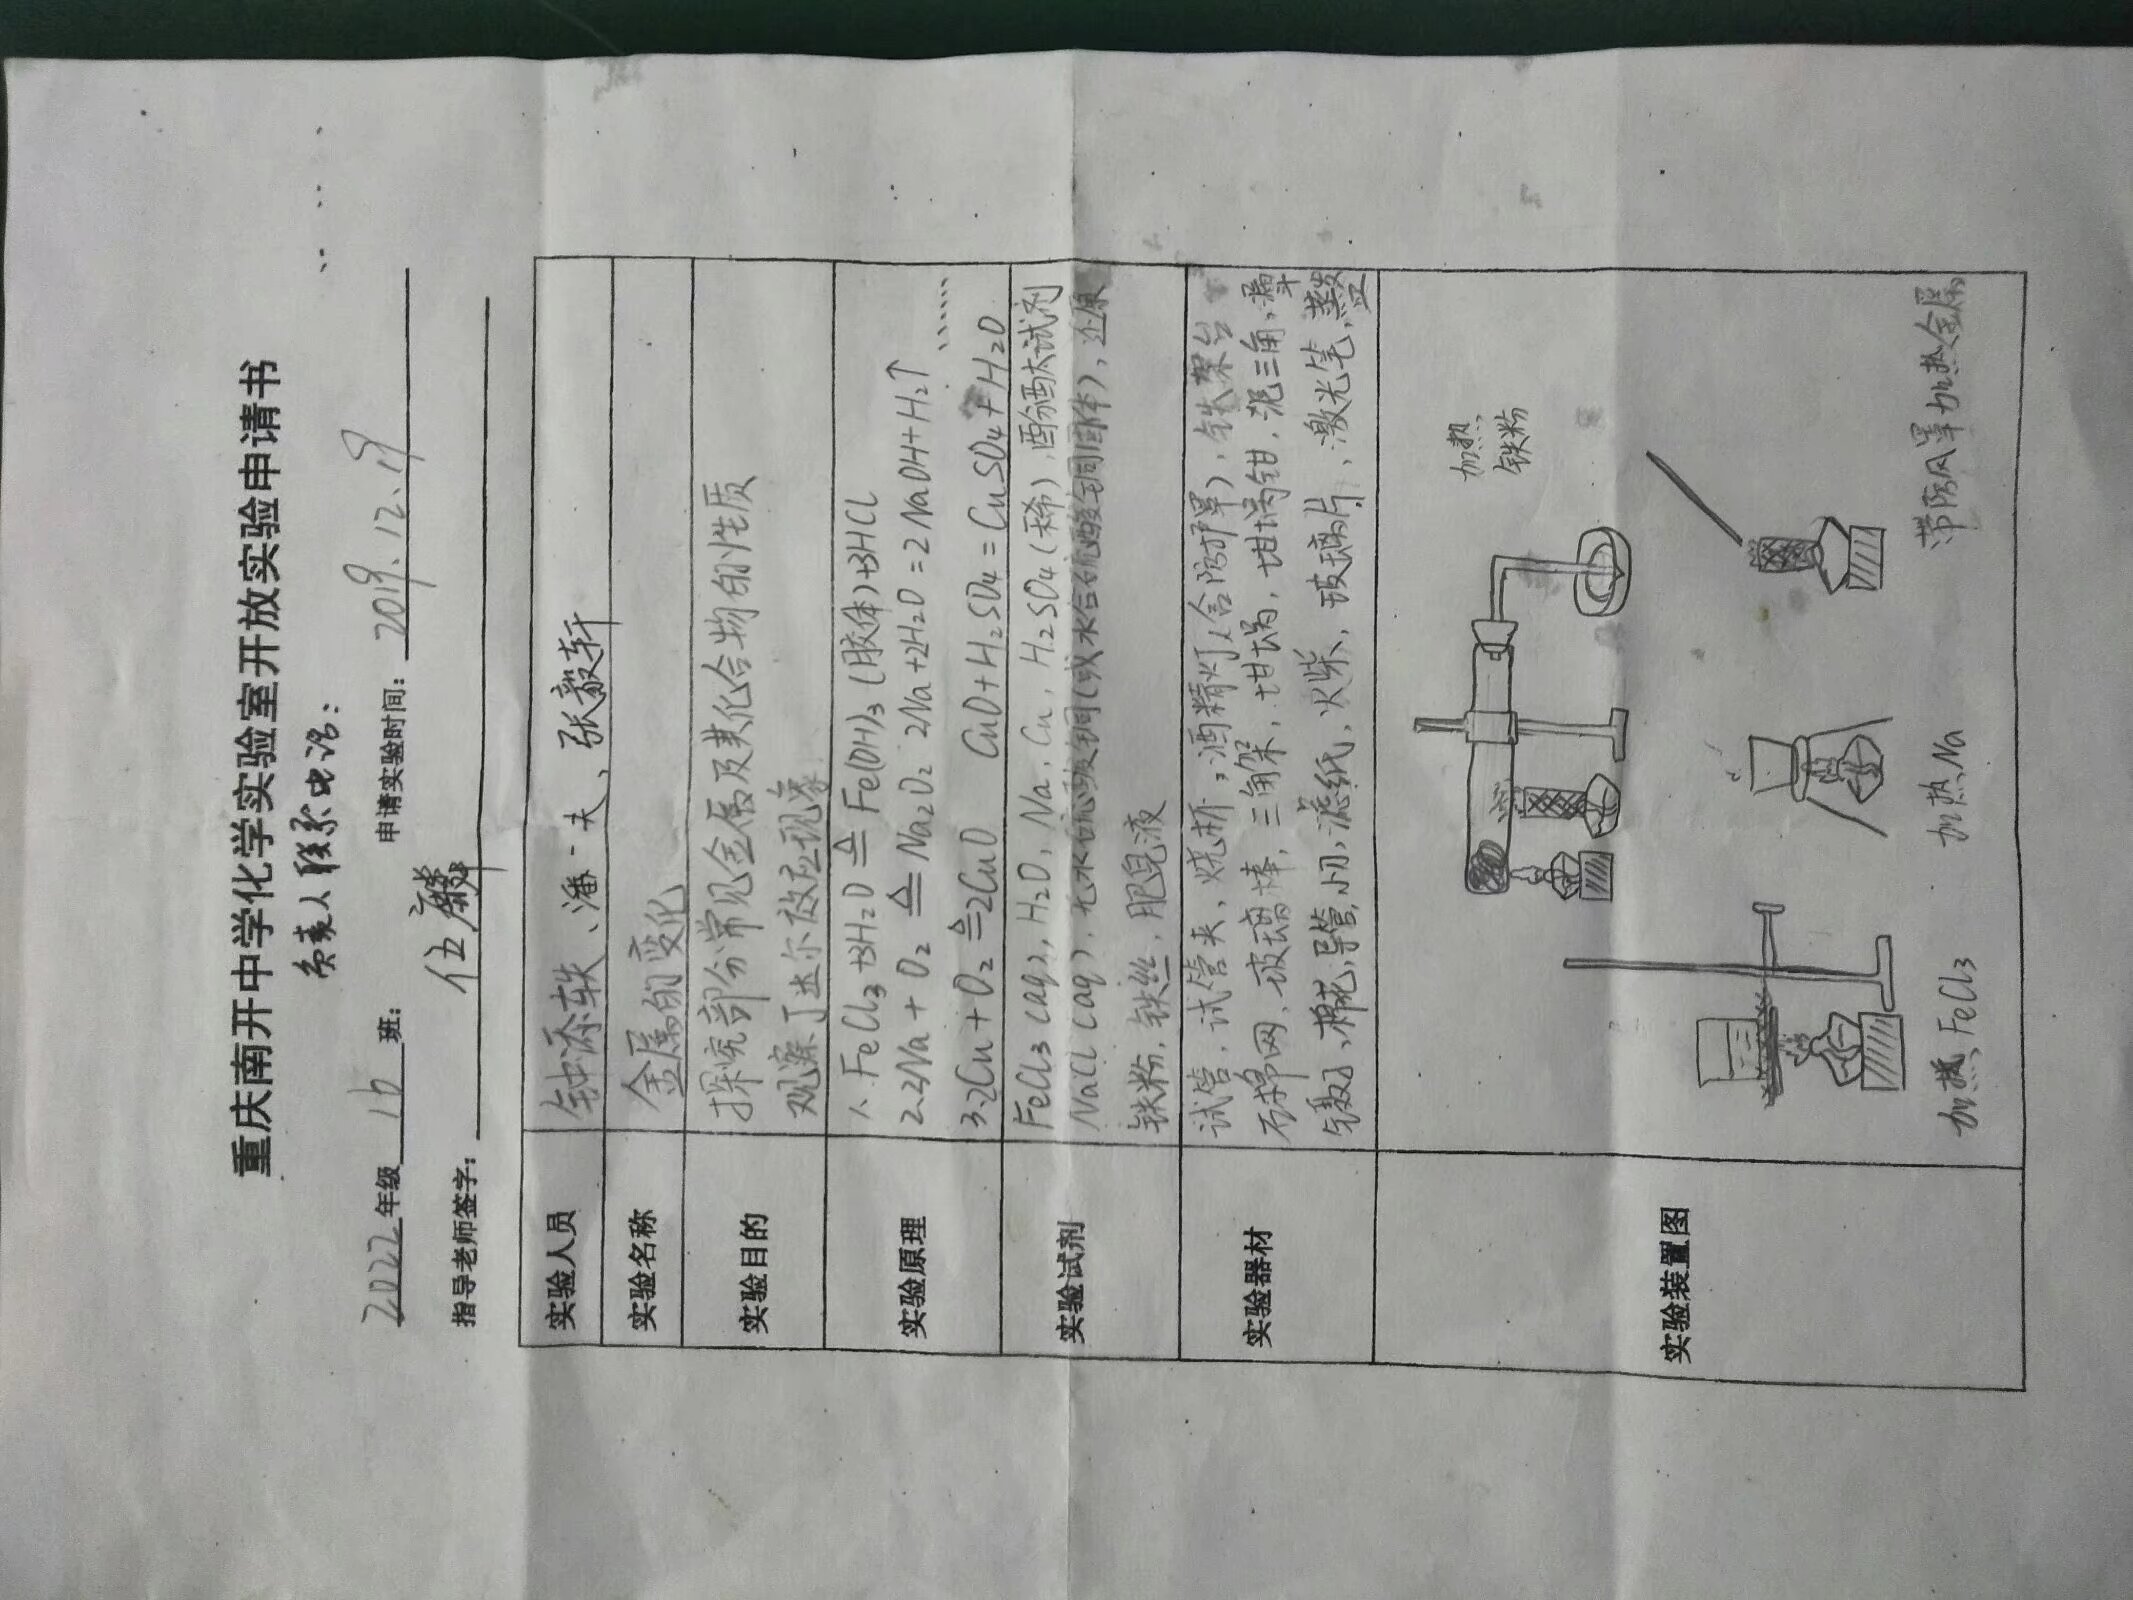 重庆南开中学化学实验室开放实验申请书
负责人联系电话：
2022年级 16 班： 申请实验时间：2019.12.19
指导老师签字：伍
实验人员 钟添轶、潘一夫、张毅轩
实验名称 金属的变化
实验目的 探究部分常见金属及其化合物的性质
观察丁达尔效应现象
实验原理 1. FeCl₃+3H₂O ≜ Fe(OH)₃(胶体)+3HCl
2. 2Na + O₂ ≜ Na₂O₂ 2Na+2H₂O=2NaOH+H₂↑
3. 2Cu + O₂ ≜ 2CuO CuO+H₂SO₄=CuSO₄+H₂O ……
实验试剂 FeCl₃(aq), H₂O, Na, Cu, H₂SO₄(稀), 酚酞试剂
NaCl(aq), 无水硫酸铜(或水合硫酸铜固体), 还原
铁粉, 铁丝, 肥皂液
实验器材 试管, 试管夹, 烧杯, 酒精灯(含防护罩), 铁架台
石棉网, 玻璃棒, 三角架, 坩埚, 坩埚钳, 泥三角, 漏斗
镊子, 棉花, 导管, 小刀, 滤纸, 火柴, 玻璃片, 激光笔, 蒸发皿
实验装置图
加热
铁粉
加热FeCl₃
加热Na
带防风罩加热金属